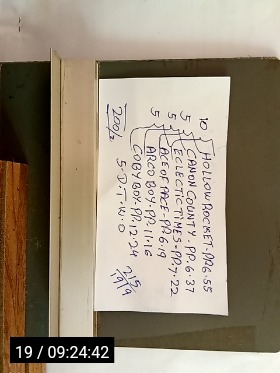 10 HOLLOW ROCKET. PP.6.55
5 CANON COUNTY. PP.6.37
5 ECLECTIC TIMES-PP.7.22
5 ACE OF PACE-PP.6.19
5 ARCO BOY-PP.11.16
COBY BOY-PP.12.24
5.D.T.W.O
200/2
215
19/9
19 / 09:24:42